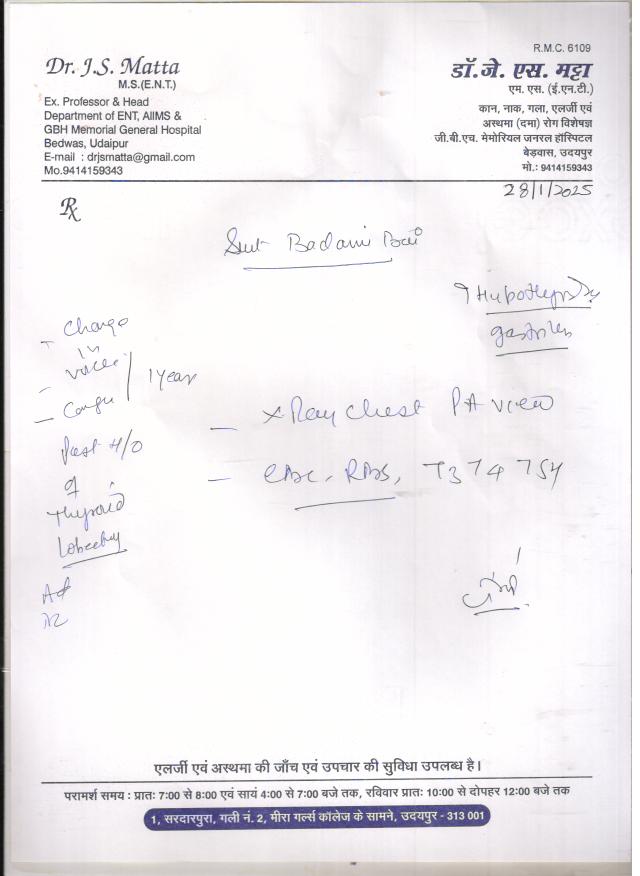 R.M.C. 6109
Dr. J.S. Matta
M.S.(E.N.T.)
Ex. Professor & Head
Department of ENT, AIIMS &
GBH Memorial General Hospital
Bedwas, Udaipur
E-mail : drjsmatta@gmail.com
Mo.9414159343
डॉ. जे. एस. मट्टा
एम. एस. (ई.एन.टी.)
कान, नाक, गला, एलर्जी एवं
अस्थमा (दमा) रोग विशेषज्ञ
जी.बी.एच. मेमोरियल जनरल हॉस्पिटल
बेड़वास, उदयपुर
मो.: 9414159343
28/1/2025
Rx
Smt Badami Bai
Change
in
voice
1 year
Past H/O
of
Thyroid
X Ray Chest PA view
CBC, RBS, T3 T4 TSH
एलर्जी एवं अस्थमा की जाँच एवं उपचार की सुविधा उपलब्ध है।
परामर्श समय : प्रातः 7:00 से 8:00 एवं सायं 4:00 से 7:00 बजे तक, रविवार प्रातः 10:00 से दोपहर 12:00 बजे तक
1, सरदारपुरा, गली नं. 2, मीरा गर्ल्स कॉलेज के सामने, उदयपुर - 313 001